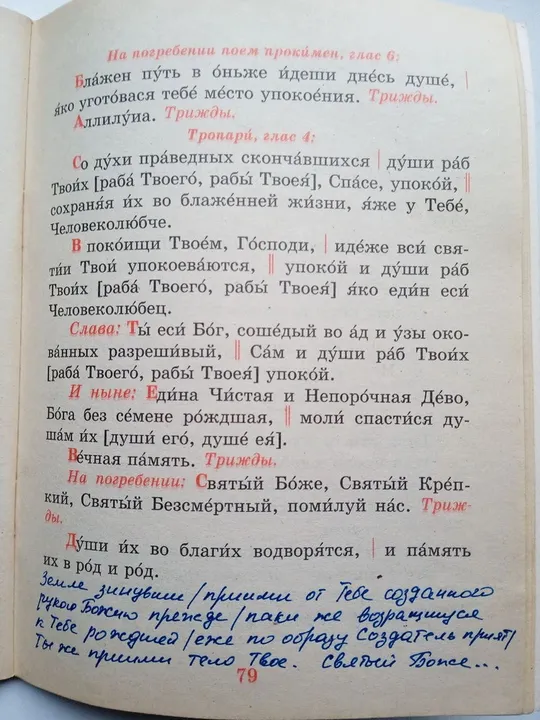 На погребении поем проки́мен, глас 6:
Блаже́н пу́ть в о́ньже и́деши дне́сь душе́, |
я́ко угото́вася тебе́ ме́сто упокое́ния. Трижды.
Аллилу́иа. Трижды.
Тропари́, глас 4:
Со ду́хи пра́ведных сконча́вшихся | ду́ши ра́б
Твои́х [раба́ Твоего́, рабы́ Твоея́], Спа́се, упоко́й, ||
сохраня́я и́х во блаже́нней жи́зни, я́же у Тебе́,
Человеколю́бче.
В поко́ищи Твое́м, Го́споди, | иде́же вси́ свя-
ти́и Твои́ упокоева́ются, || упоко́й и ду́ши ра́б
Твои́х [раба́ Твоего́, рабы́ Твоея́] я́ко еди́н еси́
Человеколю́бец.
Слава: Ты́ еси́ Бо́г, соше́дый во а́д и у́зы око-
ва́нных разреши́вый, || Са́м и ду́ши ра́б Твои́х
[раба́ Твоего́, рабы́ Твоея́] упоко́й.
И ныне: Еди́на Чи́стая и Непоро́чная Де́во,
Бо́га без се́мене ро́ждшая, || моли́ спасти́ся ду-
ша́м и́х [души́ его́, душе́ ея́].
Ве́чная па́мять. Трижды.
На погребении: Святы́й Бо́же, Святы́й Кре́п-
кий, Святы́й Безсме́ртный, поми́луй на́с. Триж-
ды.
Ду́ши и́х во благи́х водворя́тся, | и па́мять
и́х в ро́д и ро́д.
Земле зинувши / приими от Тебе созданного
рукою Божию прежде / паки же возращшуся
к Тебе рождшей / еже по образу Создатель прият /
Ты же приими тело Твое. Святый Боже...
79